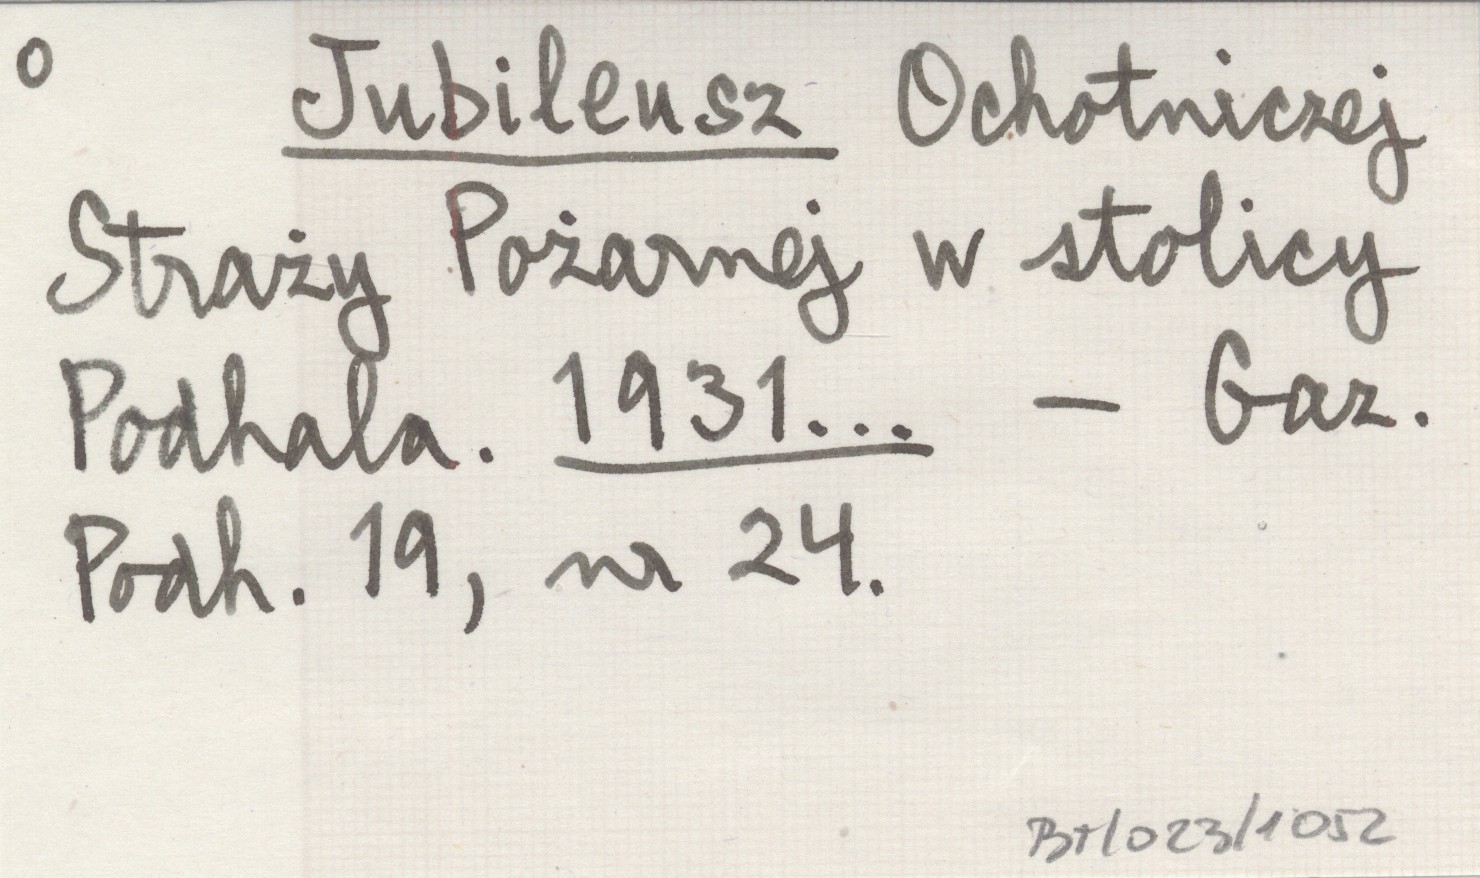 o Jubileusz Ochotniczej
Straży Pożarnej w stolicy
Podhala. 1931... – Gaz.
Podh. 19, nr 24.
BT/023/1052